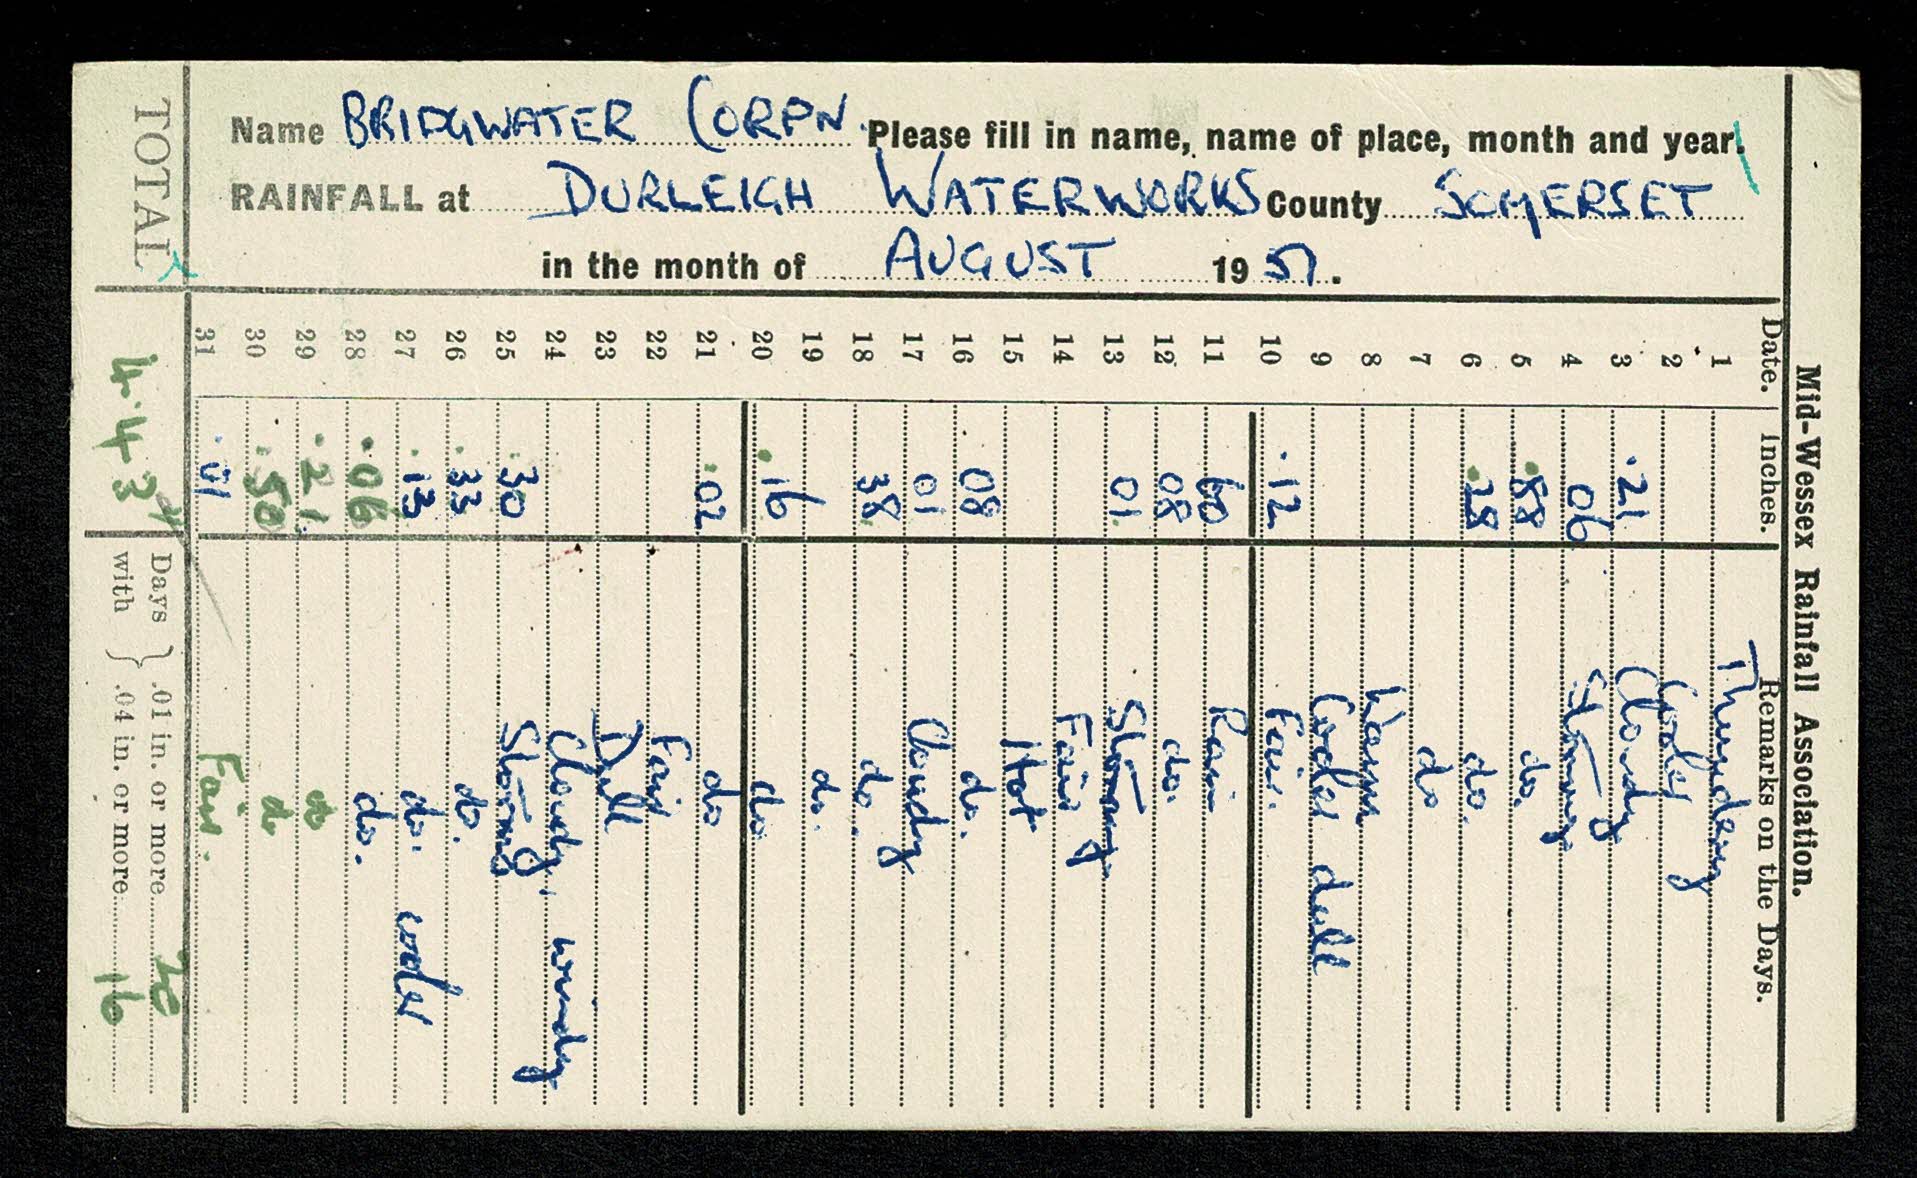 Name BRIDGWATER CORPN. Please fill in name, name of place, month and year.
RAINFALL at DURLEIGH WATERWORKS County SOMERSET
in the month of AUGUST 19 57.
Mid-Wessex Rainfall Association.
Date. Inches. Remarks on the Days.
1 Thundery
2 Cooler
3 .21 Cloudy
4 06 Stormy
5 .88 do.
6 .28 do.
7 do
8 Warm
9 Cooler dull
10 .12 Fair.
11 60 Rain
12 08 do.
13 01 Stormy
14 Fair
15 Hot
16 08 do.
17 01 Cloudy
18 38 do.
19 do.
20 .16 do
21 .02 do
22 Fair
23 Dull
24 Cloudy, windy
25 .30 Stormy
26 .33 do.
27 .13 do. cooler
28 .06 do.
29 .21 do
30 .50 do
31 .01 Fair.
TOTAL 4.43
Days with } .01 in. or more 20
.04 in. or more 16